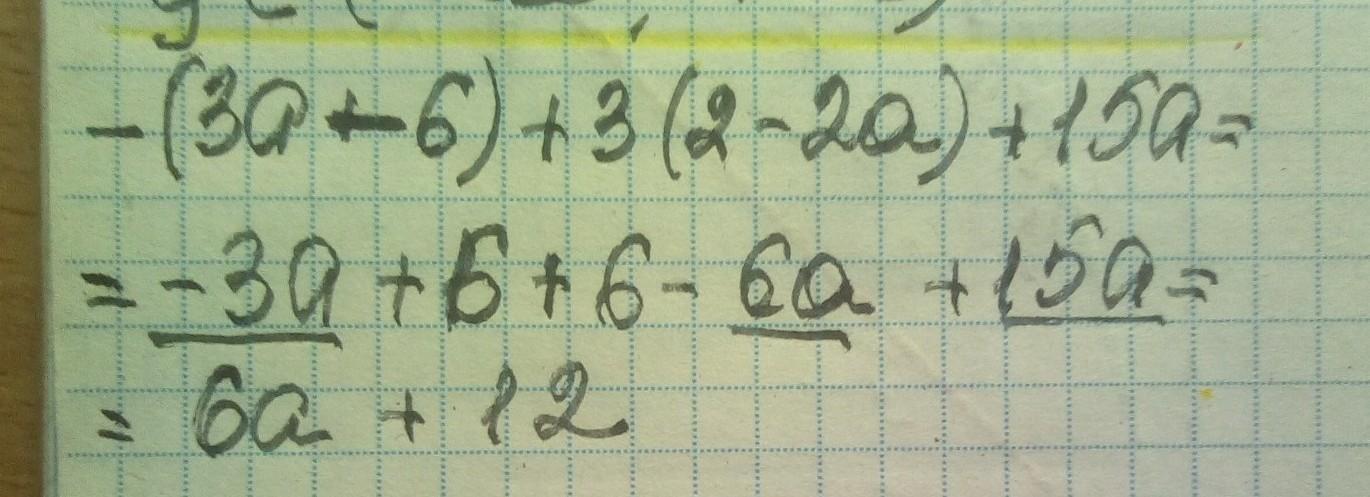 -(3a - 6) + 3(2 - 2a) + 15a =
= -3a + 6 + 6 - 6a + 15a =
= 6a + 12